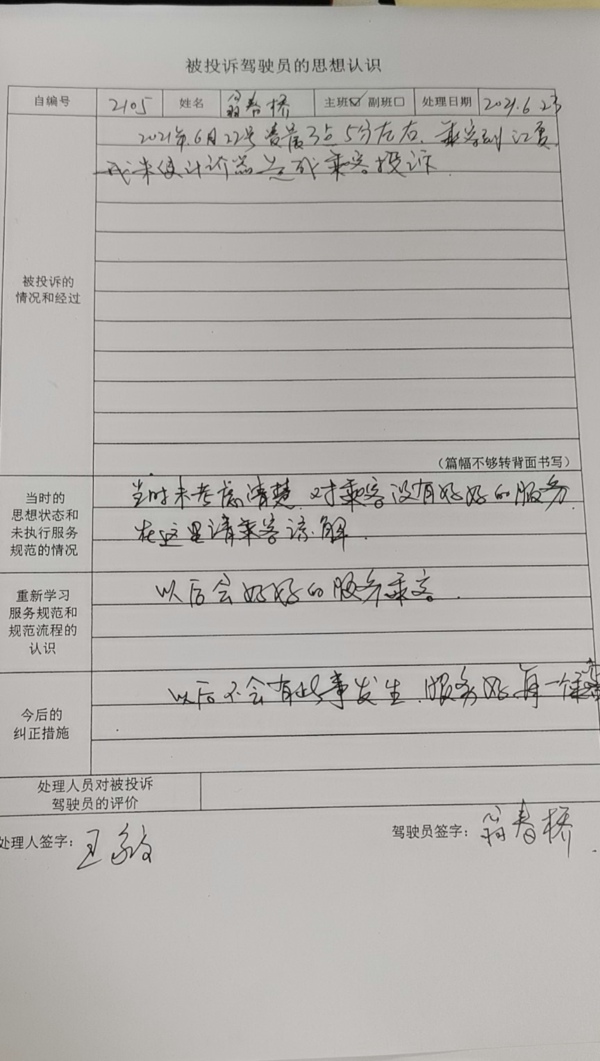 被投诉驾驶员的思想认识
自编号 2105 姓名 翁春桥 主班☑ 副班□ 处理日期 2021.6.23
2021年6月22号凌晨3点5分左右. 乘客到江夏.
我未使计价器造成乘客投诉.
被投诉的
情况和经过
(篇幅不够转背面书写)
当时的
思想状态和
未执行服务
规范的情况
当时未考虑清楚. 对乘客没有好好的服务.
在这里请乘客谅解.
重新学习
服务规范和
规范流程的
认识
以后会好好的服务乘客.
今后的
纠正措施
以后不会有此事发生. 服务好每一个乘客
处理人员对被投诉
驾驶员的评价
处理人签字: 王
驾驶员签字: 翁春桥.